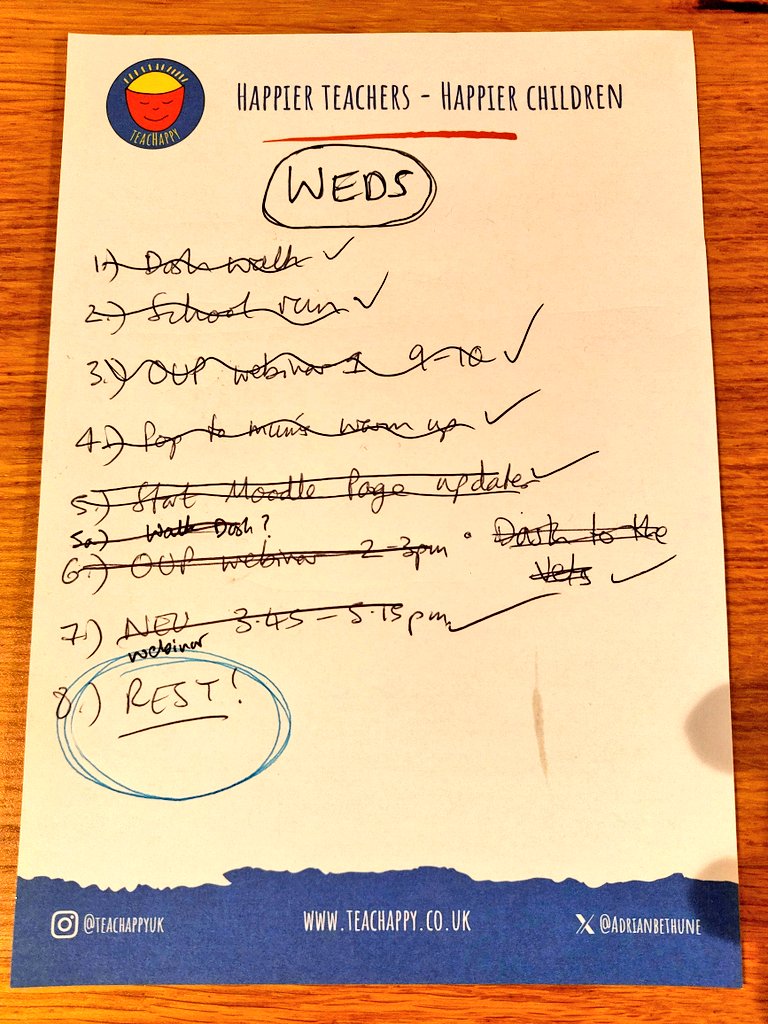 TEACHAPPY
HAPPIER TEACHERS - HAPPIER CHILDREN
WEDS
1.) Dash walk ✓
2.) School run ✓
3.) OUP webinar 1 9-10 ✓
4.) Pop to mum's warm up ✓
5.) Start Moodle Page updates ✓
5a.) Walk Dash?
6.) OUP webinar 2-3pm • Dash to the
Vets ✓
7.) NEU 3.45 - 5.15pm ✓
webinar
8.) REST!
@TEACHAPPYUK
WWW.TEACHAPPY.CO.UK
@ADRIANBETHUNE